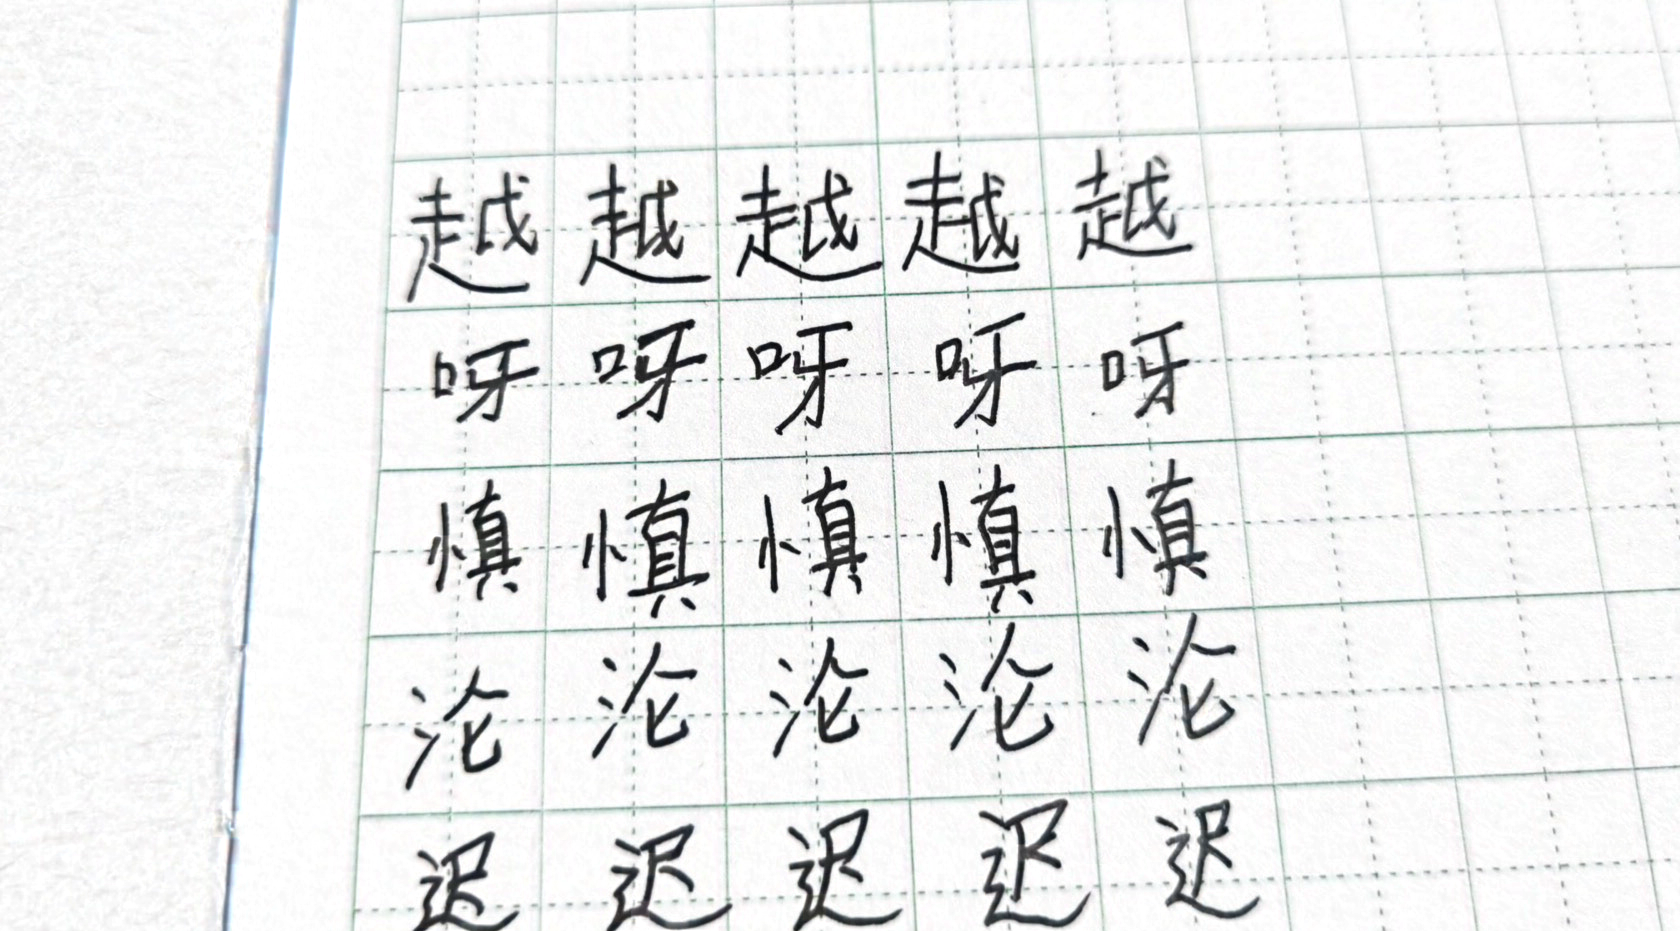 越越越越越
呀呀呀呀呀
慎慎慎慎慎
沦沦沦沦沦
迟迟迟迟迟